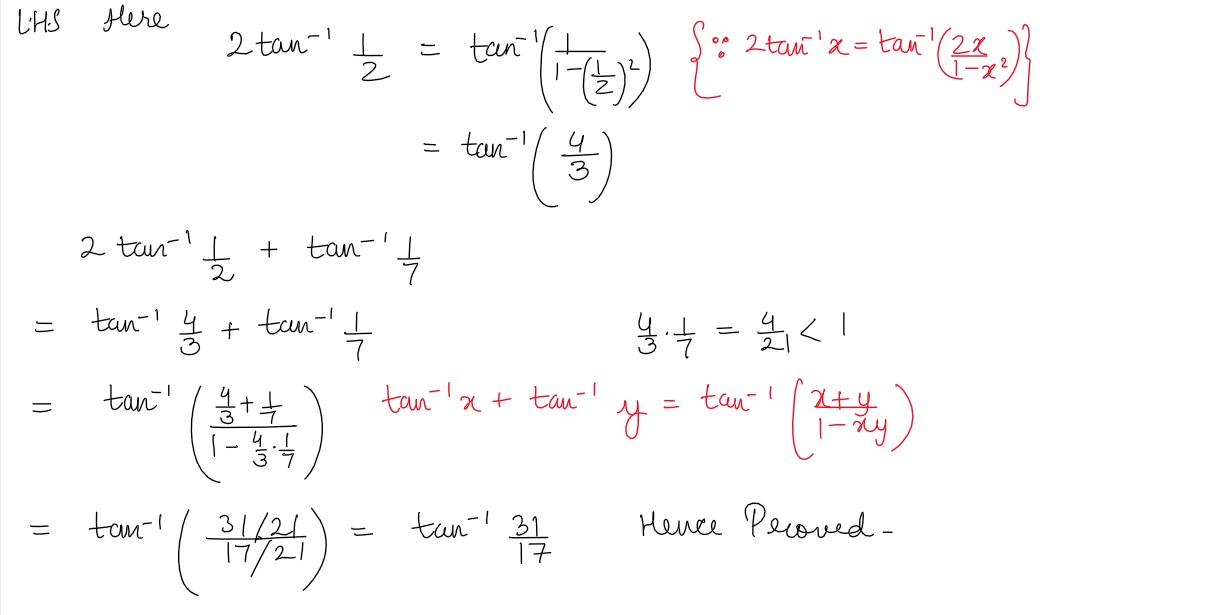 L.H.S Here
2tan⁻¹ 1/2 = tan⁻¹(1/(1-(1/2)²)) {∵ 2tan⁻¹x = tan⁻¹(2x/(1-x²))}
= tan⁻¹(4/3)
2 tan⁻¹ 1/2 + tan⁻¹ 1/7
= tan⁻¹ 4/3 + tan⁻¹ 1/7 4/3 · 1/7 = 4/21 < 1
= tan⁻¹((4/3 + 1/7)/(1 - 4/3 · 1/7)) tan⁻¹x + tan⁻¹ y = tan⁻¹((x+y)/(1-xy))
= tan⁻¹((31/21)/(17/21)) = tan⁻¹ 31/17 Hence Proved -